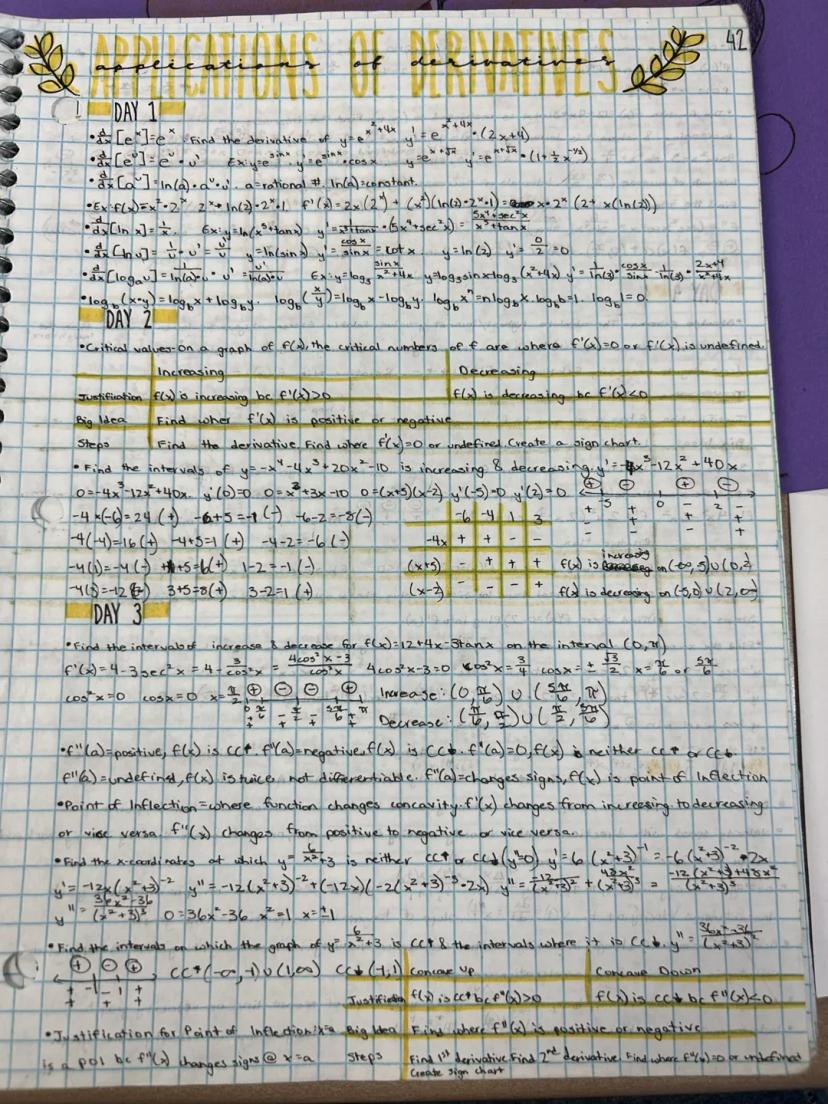 42
APPLICATIONS OF DERIVATIVES
applications of derivatives
DAY 1
• d/dx [e^x]=e^x. Find the derivative of y=e^(x²+4x) y'=e^(x²+4x)•(2x+4)
• d/dx [e^u]=e^u•u' Ex: y=e^(sinx) y'=e^(sinx)•cosx y=e^(x+√x) y'=e^(x+√x)•(1+½x^(-1/2))
• d/dx [a^u]=ln(a)•a^u•u'. a=rational #. ln(a)=constant.
• Ex: f(x)=x²•2^x 2^x→ln(2)•2^x•1 f'(x)=2x(2^x)+(x²)(ln(2)•2^x•1)= x•2^x(2+x(ln(2)))
• d/dx [ln x]=1/x. Ex: y=ln(x⁵+tanx) y'=1/(x⁵+tanx)•(5x⁴+sec²x)=(5x⁴+sec²x)/(x⁵+tanx)
• d/dx [ln u]=1/u•u'=u'/u y=ln(sinx) y'=cosx/sinx=cotx. y=ln(2) y'=0/2=0
• d/dx [log_a u]=1/(ln(a)•u)•u'=u'/(ln(a)•u) Ex: y=log₃ sinx/(x²+4x) y=log₃sinx-log₃(x²+4x) y'=1/ln(3)•cosx/sinx-1/ln(3)•(2x+4)/(x²+4x)
• log_b(x•y)=log_b x+log_b y. log_b(x/y)=log_b x-log_b y. log_b x^n=nlog_b x. log_b b=1. log_b 1=0.
DAY 2
• Critical values-On a graph of f(x), the critical numbers of f are where f'(x)=0 or f'(x) is undefined.
Increasing Decreasing
Justification f(x) is increasing bc f'(x)>0 f(x) is decreasing bc f'(x)<0
Big Idea Find wher f'(x) is positive or negative
Steps Find the derivative. Find where f'(x)=0 or undefined. Create a sign chart.
• Find the intervals of y=-x⁴-4x³+20x²-10 is increasing & decreasing. y'=-4x³-12x²+40x
0=-4x³-12x²+40x. y'(0)=0 0=x²+3x-10 0=(x+5)(x-2) y'(-5)=0 y'(2)=0 + - + -
-5 0 2
+ + - -
- + + +
- - - +
-4×(-6)=24 (+) -6+5=-1 (-) -6-2=-8 (-)
-4(-4)=16 (+) -4+5=1 (+) -4-2=-6 (-)
-4(1)=-4 (-) 1+5=6 (+) 1-2=-1 (-)
-4(3)=-12 (-) 3+5=8 (+) 3-2=1 (+)
-6 -4 1 3
-4x + + - -
(x+5) - + + +
(x-2) - - - +
f(x) is increasing on (-∞,5)∪(0,2)
f(x) is decreasing on (-5,0)∪(2,∞)
DAY 3
• Find the intervals of increase & decrease for f(x)=12+4x-3tanx on the interval (0,π)
f'(x)=4-3sec²x=4-3/cos²x=(4cos²x-3)/cos²x 4cos²x-3=0 cos²x=3/4 cosx=±√3/2 x=π/6 or 5π/6
cos²x=0 cosx=0 x=π/2 + - - + Increase: (0,π/6)∪(5π/6,π)
0 π/6 π/2 5π/6 π
+ - - +
+ + + +
Decrease: (π/6,π/2)∪(π/2,5π/6)
• f''(a)=positive, f(x) is CC↑. f''(a)=negative, f(x) is CC↓. f''(a)=0, f(x) is neither CC↑ or CC↓.
f''(a)=undefined, f(x) is twice not differentiable. f''(a)=changes signs, f(x) is point of Inflection
• Point of Inflection=where function changes concavity. f'(x) changes from increasing to decreasing
or vice versa. f''(x) changes from positive to negative or vice versa.
• Find the x-coordinates at which y=6/(x²+3) is neither CC↑ or CC↓ (y''=0) y'=6(x²+3)⁻¹=-6(x²+3)⁻²•2x
y'=-12x(x²+3)⁻² y''=-12(x²+3)⁻²+(-12x)(-2(x²+3)⁻³•2x) y''=-12/(x²+3)²+48x²/(x²+3)³=(-12(x²+3)+48x²)/(x²+3)³
y''=(36x²-36)/(x²+3)³ 0=36x²-36 x²=1 x=±1
• Find the intervals on which the graph of y=6/(x²+3) is CC↑ & the intervals where it is CC↓. y''=(36x²-36)/(x²+3)³
+ - + CC↑(-∞,-1)∪(1,∞) CC↓(-1,1)
-1 1
+ - +
+ + +
Concave Up Concave Down
Justification f(x) is CC↑ bc f''(x)>0 f(x) is CC↓ bc f''(x)<0
Big Idea Find where f''(x) is positive or negative
Steps Find 1ST derivative. Find 2nd derivative. Find where f''(x)=0 or undefined
Create sign chart
• Justification for Point of Inflection: x=a
is a POI bc f''(x) changes signs @ x=a